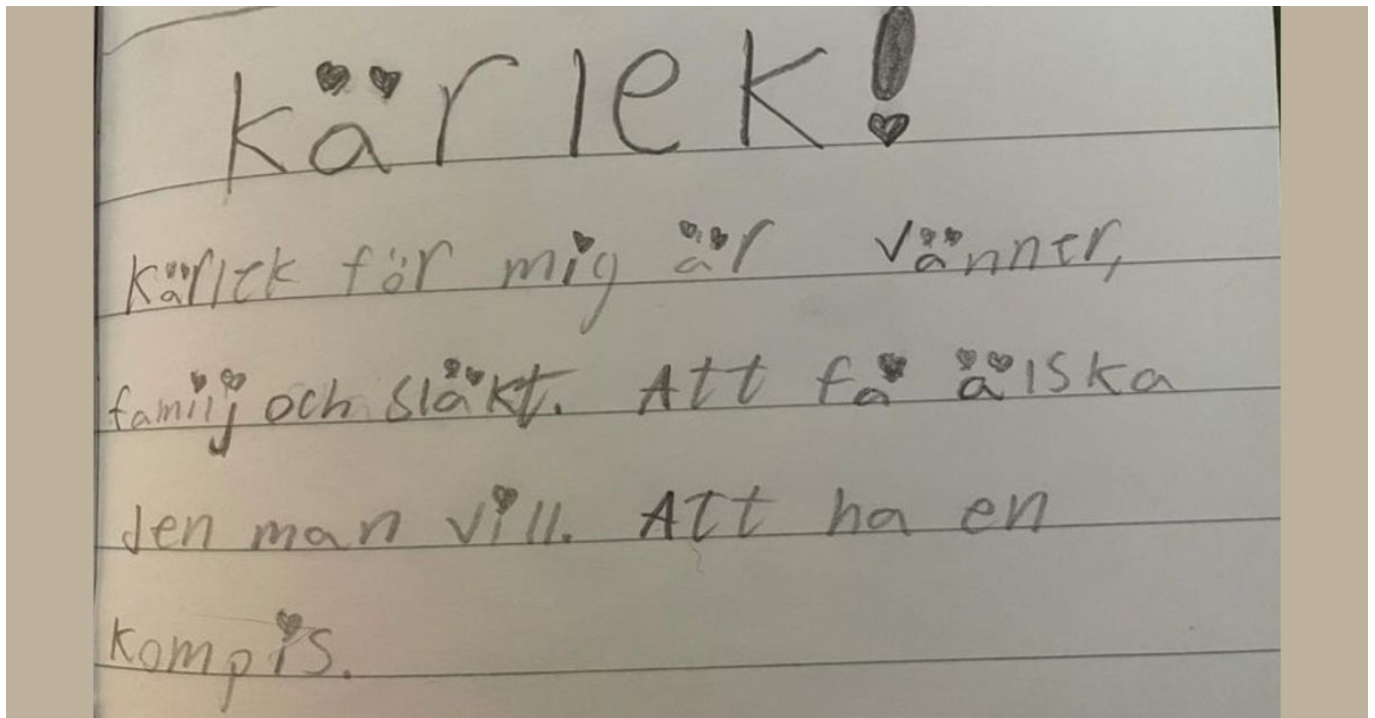 Kärlek!
Kärlek för mig är vänner,
familj och släkt. Att få älska
den man vill. Att ha en
kompis.